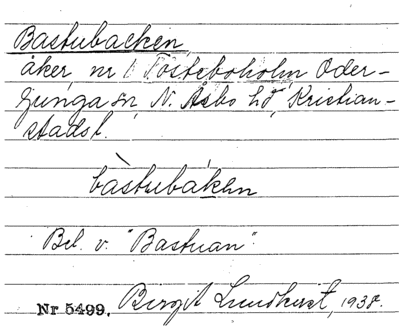 Bastubacken
åker nr 1 Tosteboholm Oder-
ljunga sn, N. Åsbo hd, Kristian-
stads l.
bàstubákən
Bel. v. "Bastuan".
Nr 5499. Birgit Lundkvist, 1938.